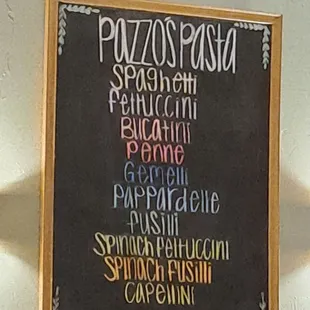 Pazzo's Pasta
Spaghetti
Fettuccini
Bucatini
Penne
Gemelli
Pappardelle
Fusilli
Spinach Fettuccini
Spinach Fusilli
Capellini